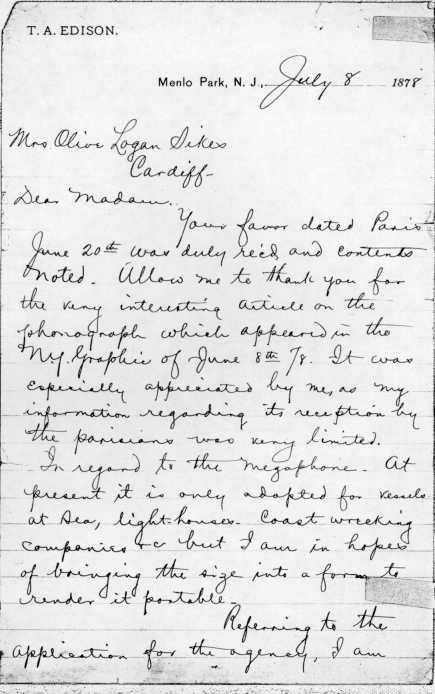 T. A. EDISON.
Menlo Park, N. J., July 8 1878
Mrs Olive Logan Sikes
Cardiff-
Dear Madam.
Your favor dated Paris
June 20th was duly rec'd, and contents
noted. Allow me to thank you for
the very interesting article on the
phonograph which appeared in the
N.Y. Graphic of June 8th /78. It was
especially appreciated by me, as my
information regarding its reception by
the parisians was very limited.
In regard to the Megaphone. At
present it is only adapted for vessels
at Sea, light-houses. Coast wrecking
companies &c but I am in hopes
of bringing the size into a form to
render it portable-
Referring to the
application for the agency, I am